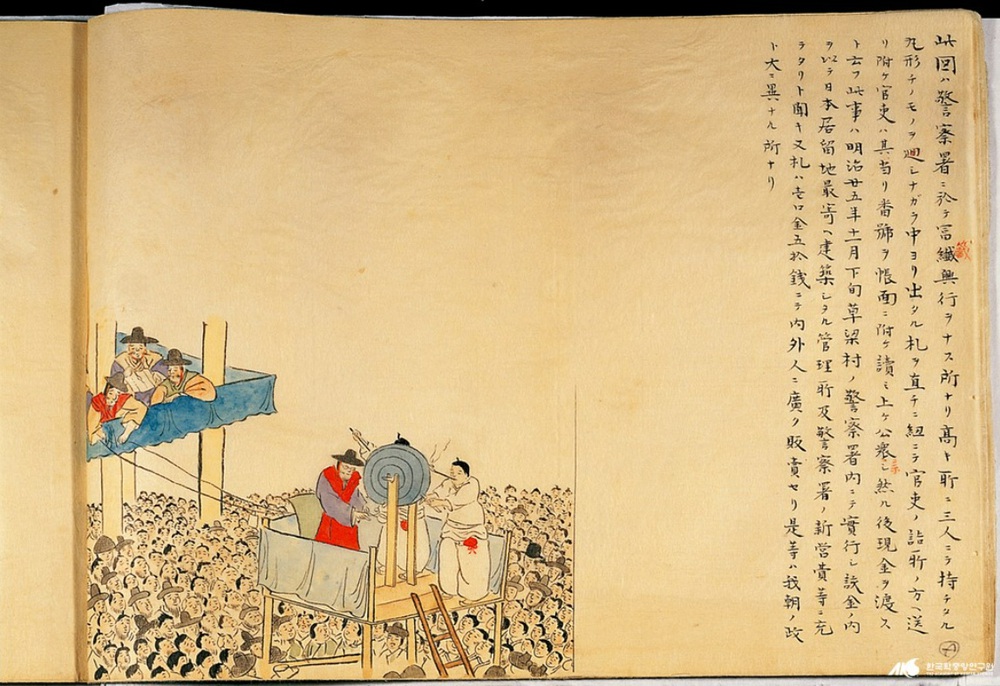 此図ハ警察署ニ於テ富纖興行ヲナス所ナリ高キ所ニ三人ニテ持チタル
籤
丸形チノモノヲ廻シナガラ中ヨリ出タル札ヲ直チニ紐ニテ官吏ノ詰所ノ方ヘ送
リ附ケ官吏ハ其当リ番號ヲ帳面ニ附ケ讀ミ上ケ公衆ニシ然ル後現金ヲ渡ス
示
ト云フ此事ハ明治廿五年十一月下旬草梁村ノ警察署内ニテ實行シ該金ノ内
ヲ以テ日本居留地最寄ヘ建築シタル管理所及警察署ノ新営費等ニ充
ラタリト聞キ又札ハ壱口金五拾錢ニテ内外人ニ廣ク販賣セリ是等ハ我朝ノ政
ト大ニ異ナル所ナリ
한국학중앙연구원